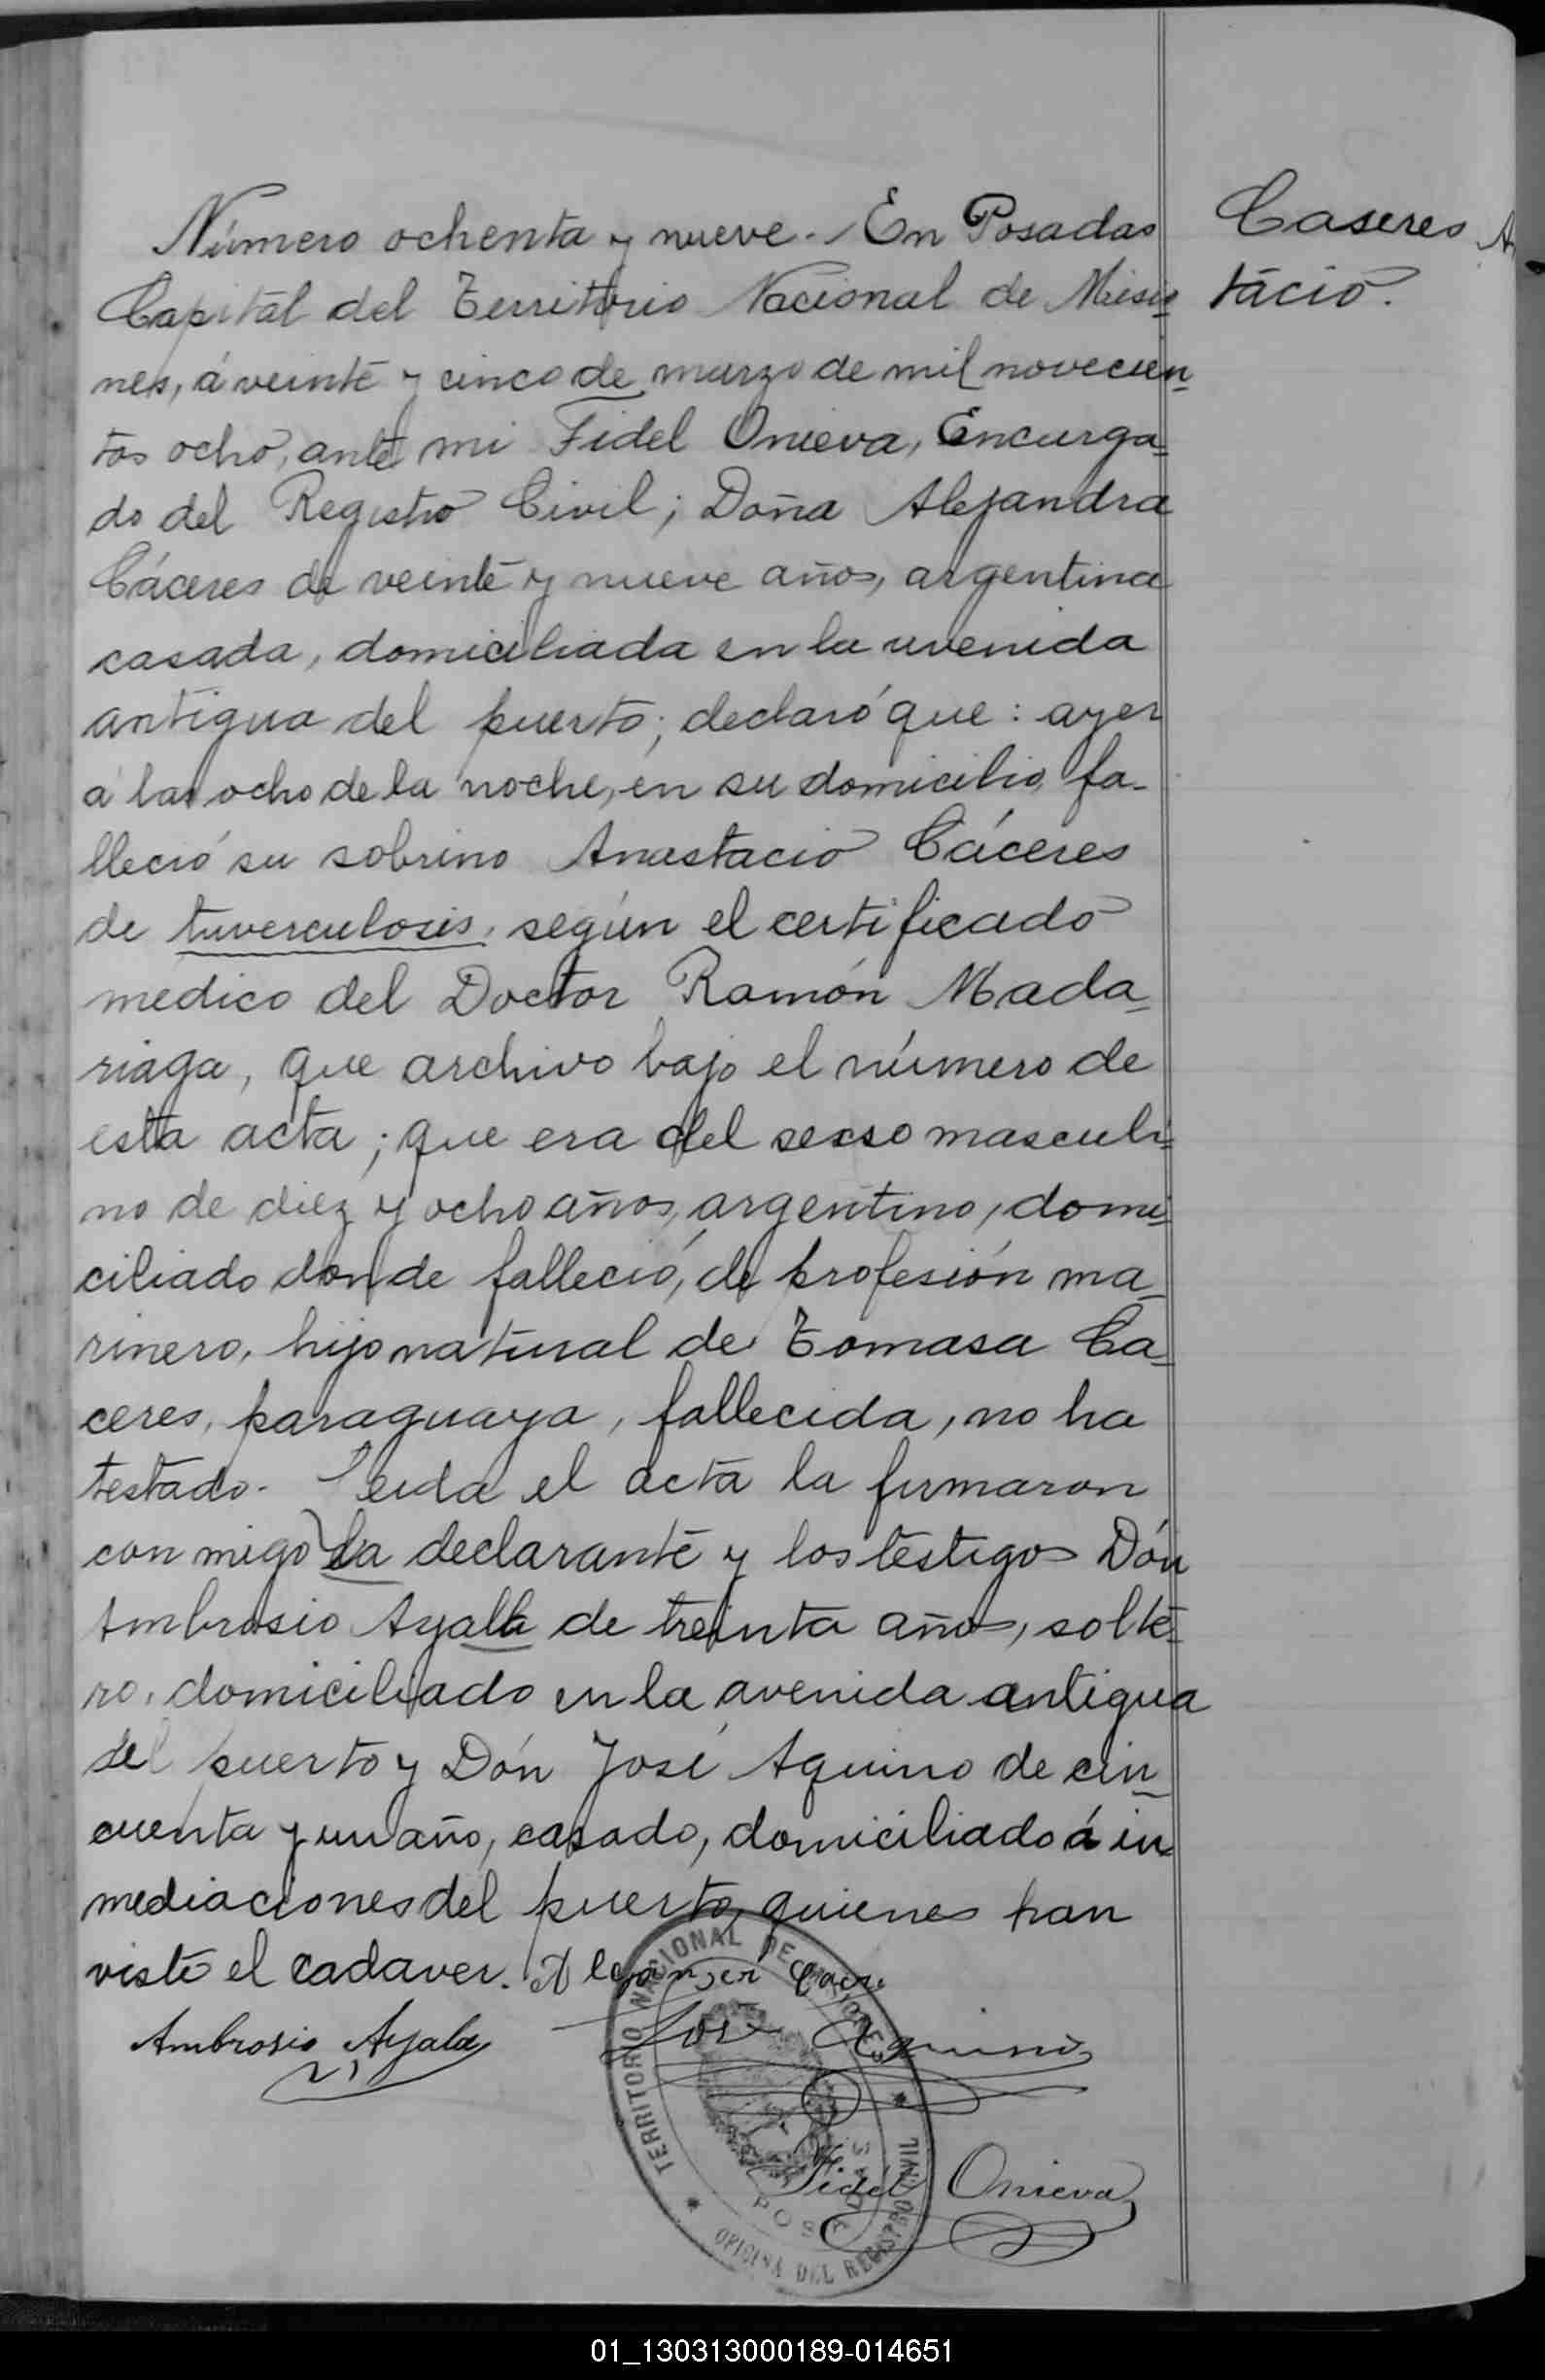 Número ochenta y nueve. En Posadas
Capital del Territorio Nacional de Misio-
nes, á veinte y cinco de marzo de mil novecien-
tos ocho, ante mi Fidel Onieva, Encarga-
do del Registro Civil; Doña Alejandra
Cáceres de veinte y nueve años, argentina
casada, domiciliada en la avenida
antigua del puerto; declaró que: ayer
a las ocho de la noche, en su domicilio fa-
lleció su sobrino Anastacio Cáceres
de tuverculosis, según el certificado
medico del Doctor Ramón Mada-
riaga, que archivo bajo el número de
esta acta; que era del secso masculi-
no de diez y ocho años, argentino, domi-
ciliado donde falleció, de profesión ma-
rinero, hijo natural de Tomasa Ca-
ceres, paraguaya, fallecida, no ha
testado. Leida el acta la firmaron
con migo la declarante y los testigos Dón
Ambrosio Ayala de treinta años, solte-
ro, domiciliado en la avenida antigua
del puerto y Dón José Aquino de cin-
cuenta y un año, casado, domiciliado á in
mediaciones del puerto, quienes han
visto el cadaver.
Ambrosio Ayala
Aquino
Fidel Onieva
Caseres A
tacio.
TERRITORIO NACIONAL DE MISIONES
OFICINA DEL REGISTRO CIVIL
POSADAS
01_130313000189-014651